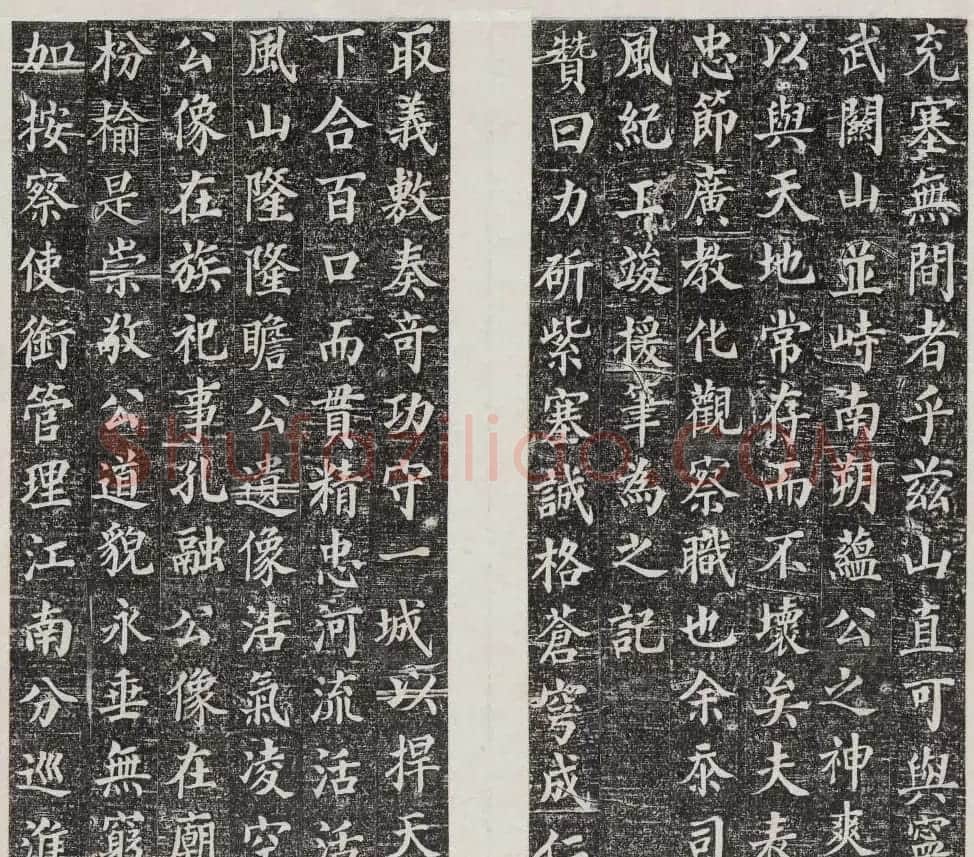 充塞無間者乎茲山直可與寧
武關山並峙南朔蘊公之神爽
以與天地常存而不壞矣夫表
忠節廣教化觀察職也余忝司
風紀工竣援筆為之記
贊曰力斫紫塞誠格蒼穹成仁
取義敷奏奇功守一城以捍天
下合百口而貫精忠河流活活
風山隆隆瞻公遺像浩氣凌空
公像在族祀事孔融公像在廟
枌榆是崇敬公道貌永垂無窮
加按察使銜管理江南分巡淮
Shufaziliao.COM